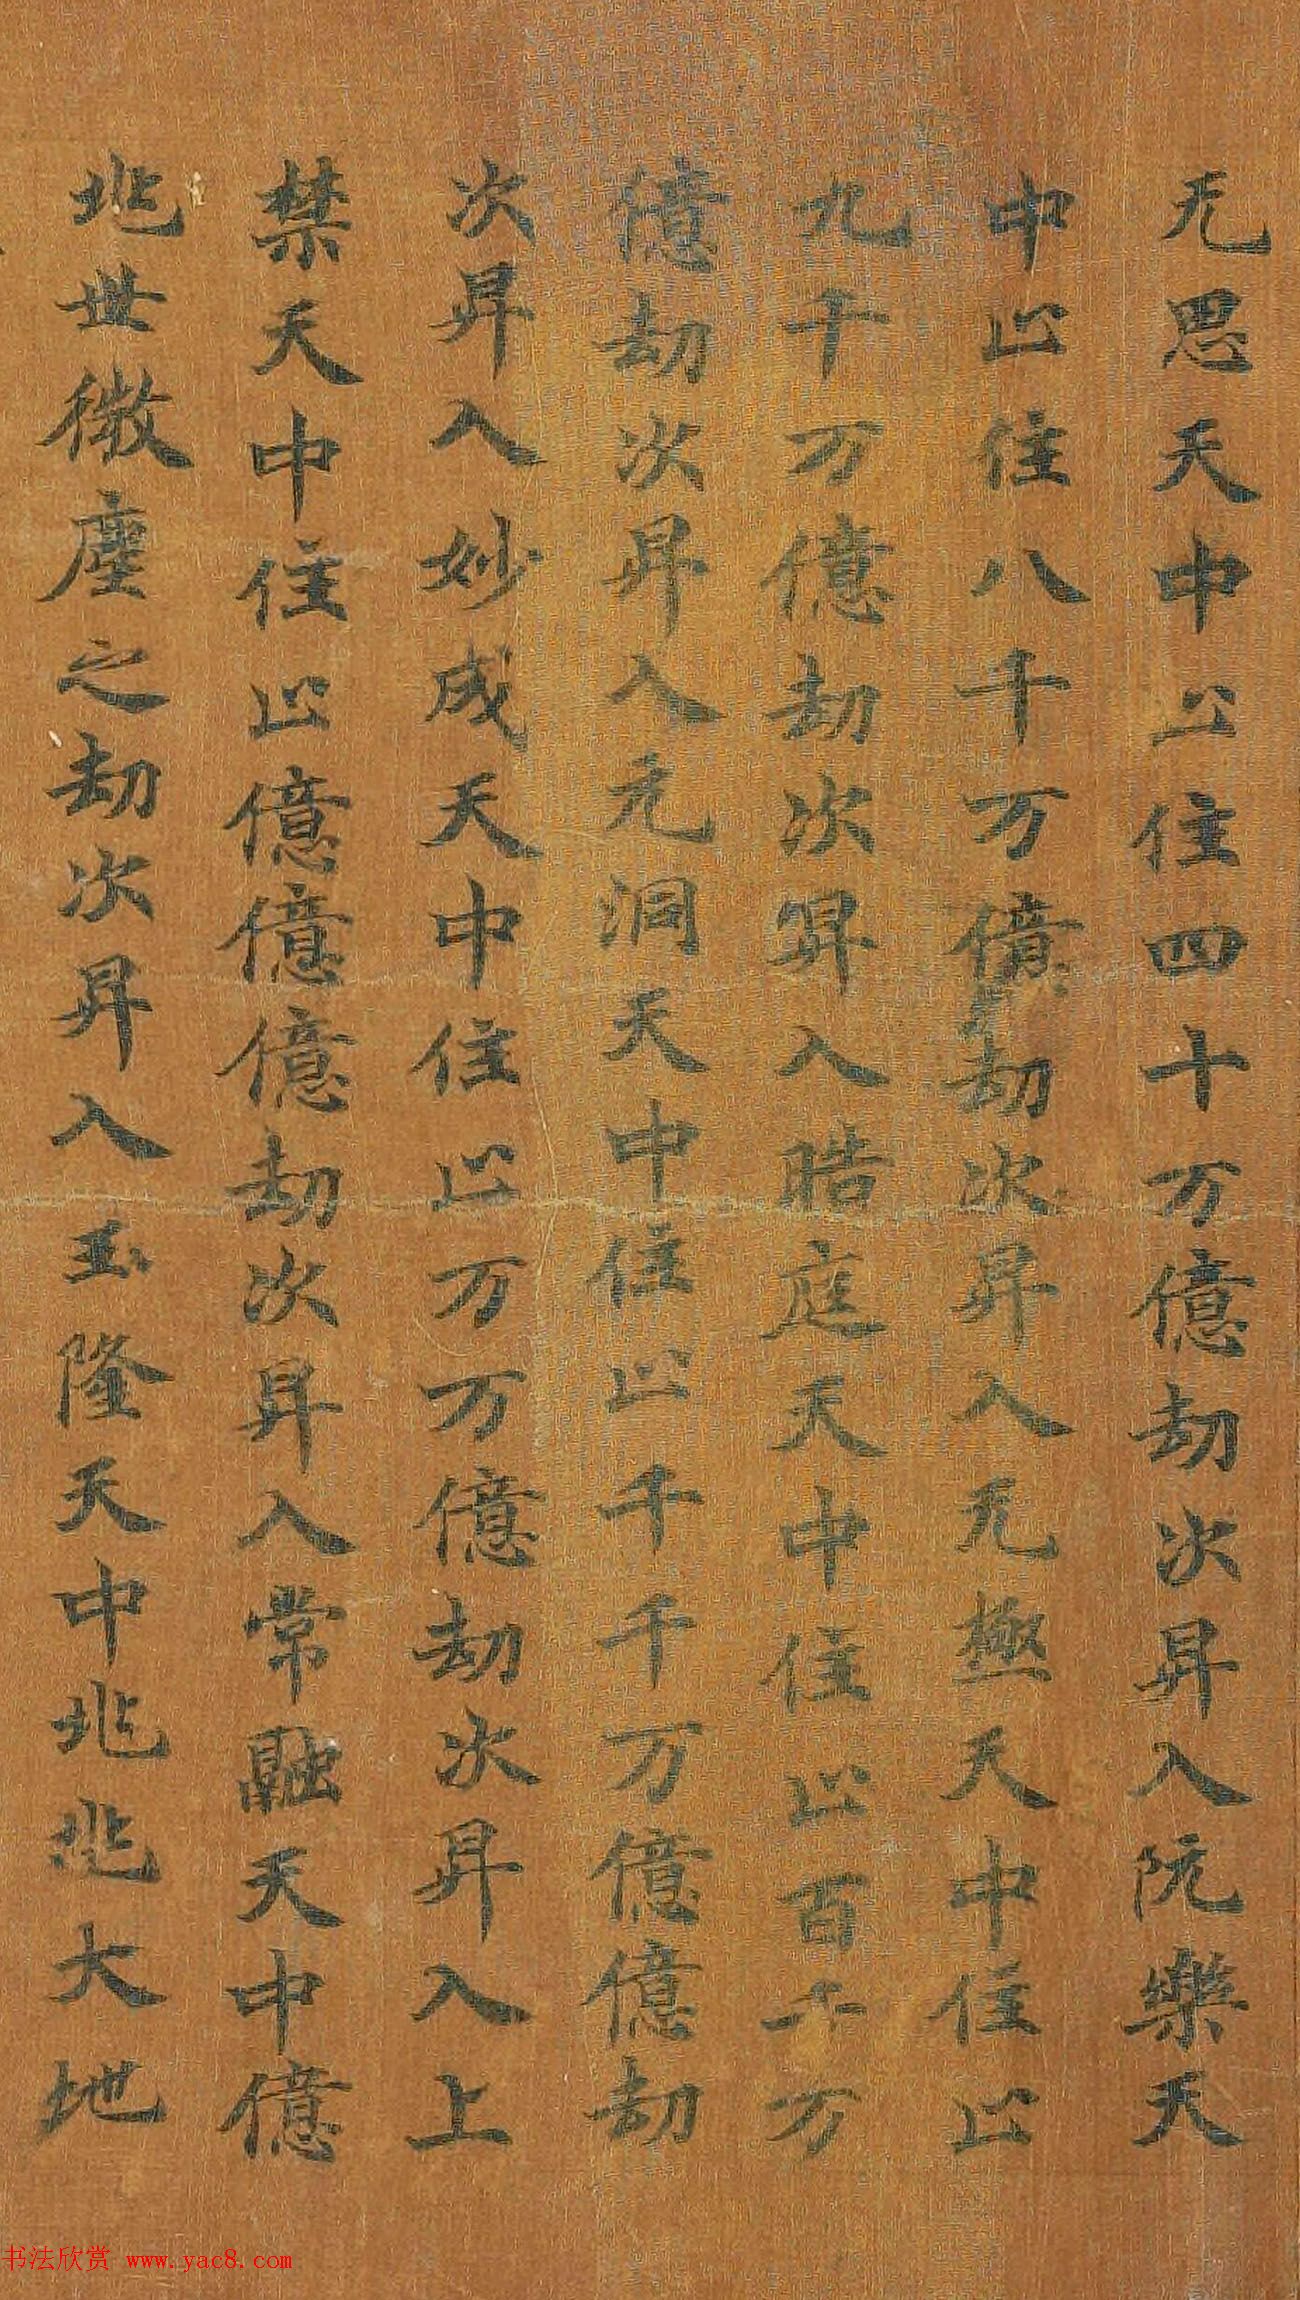 无思天中㠯住四十万億劫次昇入阮樂天
中㠯住八千万億劫次昇入无極天中住㠯
九千万億劫次昇入晧庭天中住㠯百千万
億劫次昇入元洞天中住㠯千千万億億劫
次昇入妙成天中住㠯万万億劫次昇入上
禁天中住㠯億億億劫次昇入常融天中億
兆世微塵之劫次昇入玉隆天中兆兆大地
书法欣赏 www.yac8.com